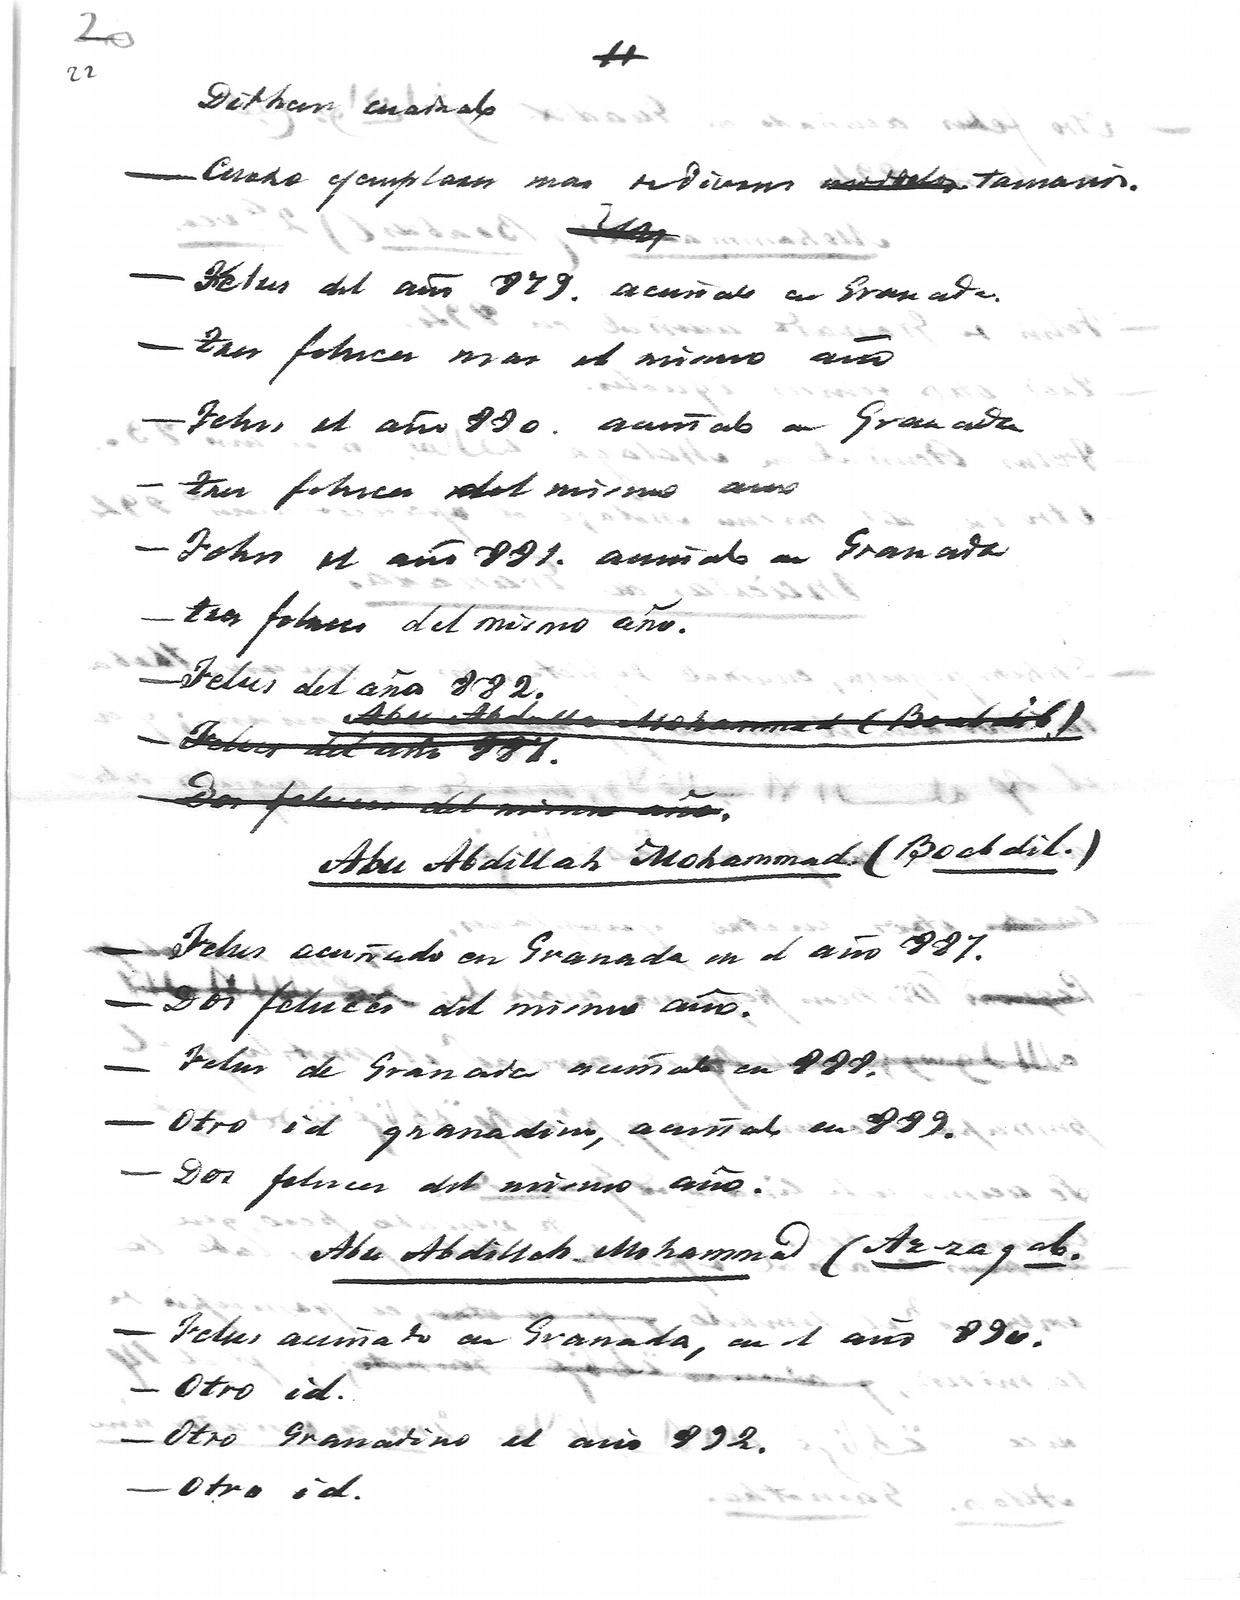 20
22
11
Dirham cuadrado
— Cuatro ejemplares mas de diversos modelos tamaños.
— Felus del año 879. acuñado en Granada.
— tres feluces mas del mismo año
— Felus del año 880. acuñado en Granada
— tres feluces del mismo año
— Felus del año 881. acuñado en Granada
— tres feluces del mismo año.
— Felus del año 882.
Abu Abdalla Mohammad (Boabdil)
— Felus del año 887.
— Dos feluces del mismo año.
Abu Abdillah Mohammad (Boabdil.)
— Felus acuñado en Granada en el año 887.
— Dos feluces del mismo año.
— Felus de Granada acuñado en 888.
— Otro id granadino, acuñado en 889.
— Dos feluces del mismo año.
Abu Abdillah Mohammad (Az-zagal.
— Felus acuñado en Granada, en el año 890.
— Otro id.
— Otro Granadino del año 892.
— Otro id.